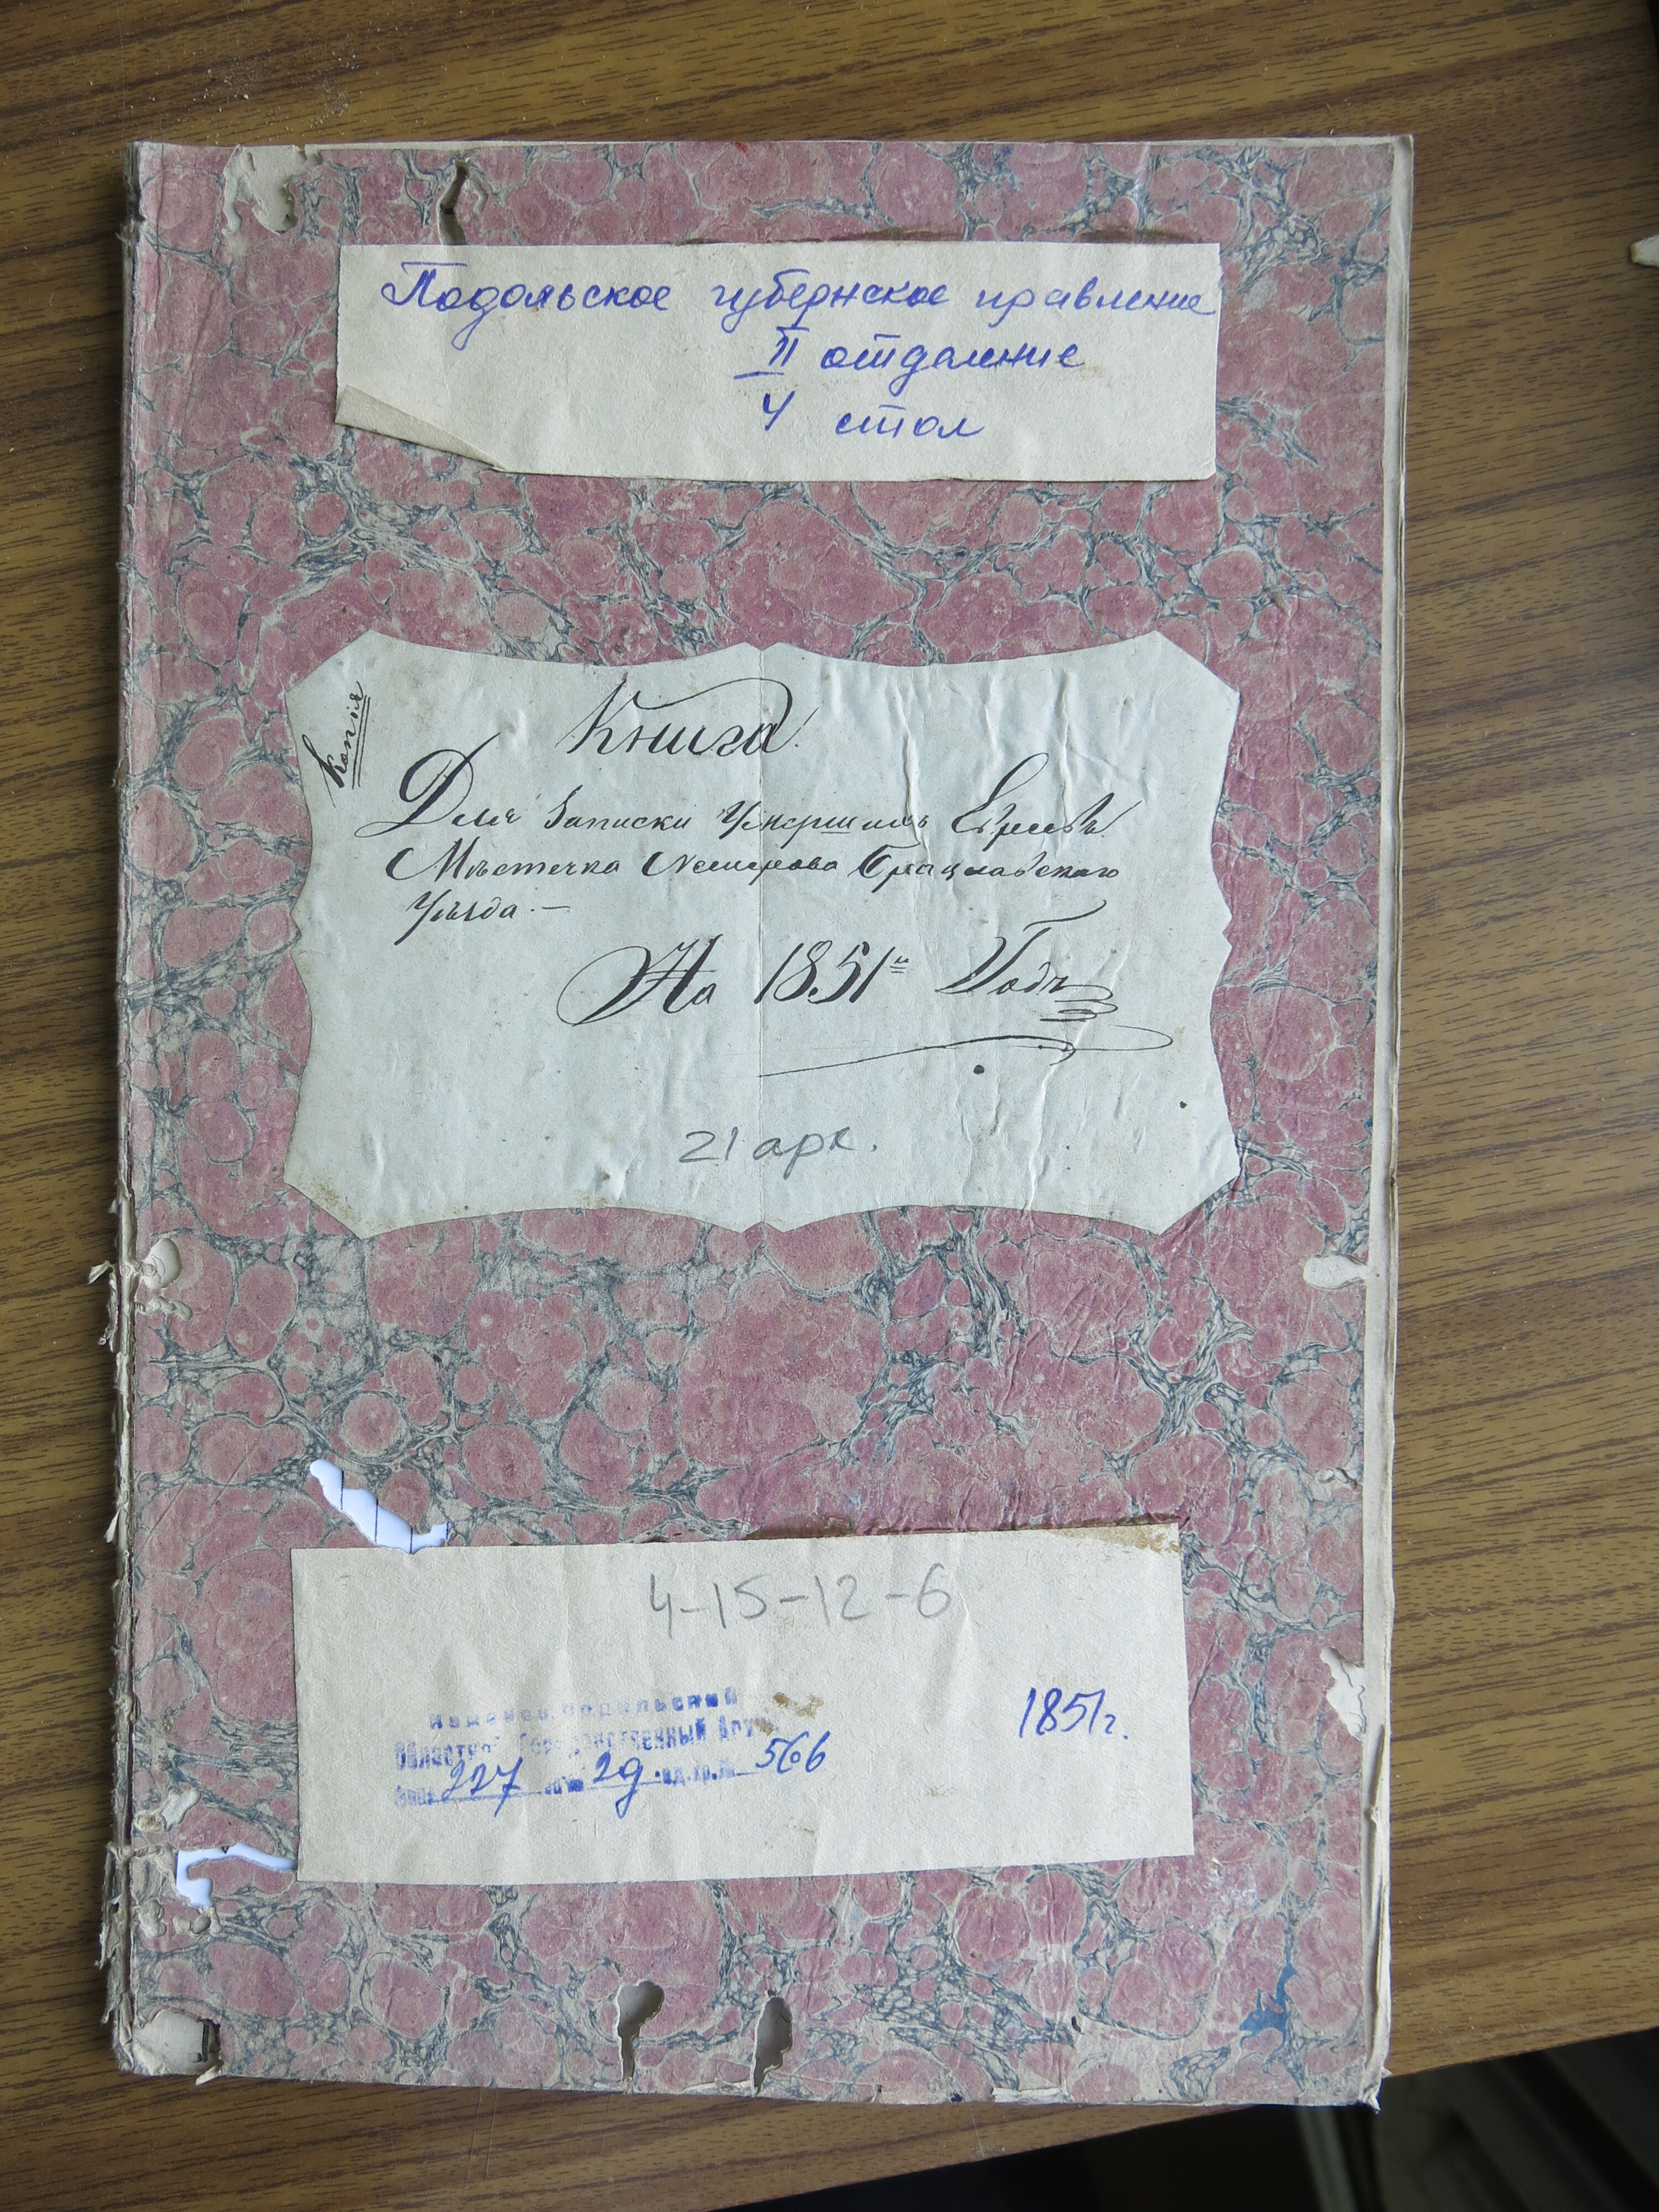 Подольское губернское правление
II отделение
4 стол
Копія
Книга
Для Записки Умершихъ Евреевъ
Мѣстечка Немирова Брацлавскаго
Уѣзда. —
На 1851й Годъ
21 арк.
4-15-12-6
Каменец-Подольский
Областной Государственный Архив
Фонд 227 оп. № 2д. ед. хр. № 566
1851г.